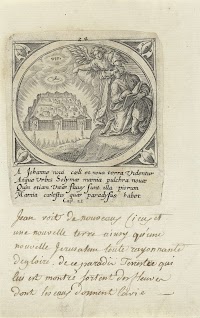 A Iohanne noui cœli et noua terra Videntur
Atque Vrbis Solymæ mœnia pulchra nouæ
Quin etiam Vitæ fluuÿ sunt illa
Mœnia cælestis quæ paradysus habet
Cap. 21
Jean voit de nouveaux Cieux et
une nouvelle terre ainsy qu'une
nouvelle Jerusalem toute rayonnante
de gloire, de ce paradis Terrestre qui
luy est montré sortent des fleuves
dont les eaux donnent la vie